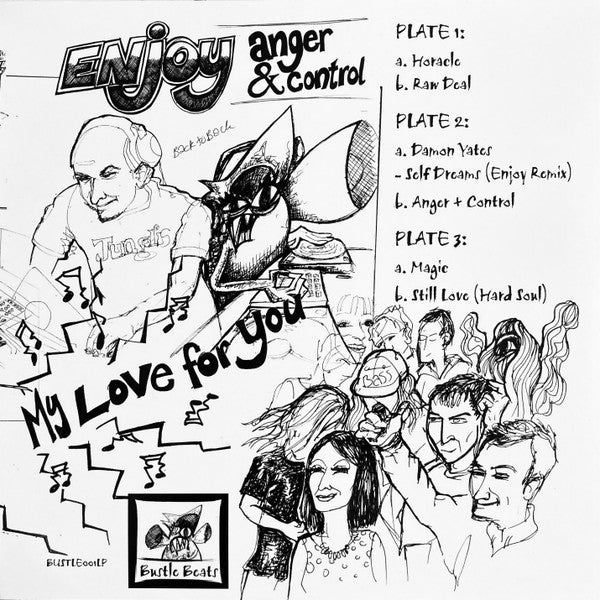 ENJOY
anger
& control
Back to Back
My Love for You
PLATE 1:
a. Horacle
b. Raw Deal
PLATE 2:
a. Damon Yates
- Self Dreams (Enjoy Remix)
b. Anger + Control
PLATE 3:
a. Magic
b. Still Love (Hard Soul)
BUSTLE001LP
Bustle Beats